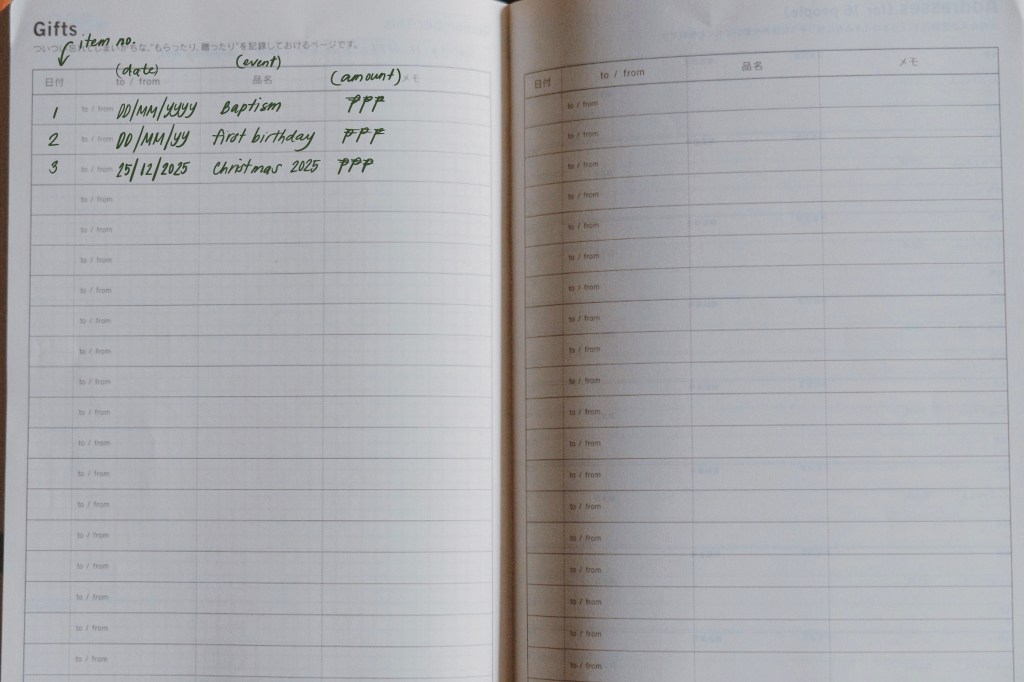 Gifts
ついつい忘れてしまいがちな、“もらったり、贈ったり”を記録しておけるページです。
item no.
(date) (event) (amount)
日付 to / from 品名 メモ
1 to / from DD/MM/YYYY Baptism ₱₱₱
2 to / from DD/MM/YY first birthday ₱₱₱
3 to / from 25/12/2025 Christmas 2025 ₱₱₱
to / from
to / from
to / from
to / from
to / from
to / from
to / from
to / from
to / from
to / from
to / from
to / from
to / from
to / from
to / from
to / from
日付 to / from 品名 メモ
to / from
to / from
to / from
to / from
to / from
to / from
to / from
to / from
to / from
to / from
to / from
to / from
to / from
to / from
to / from
to / from
to / from
to / from
to / from